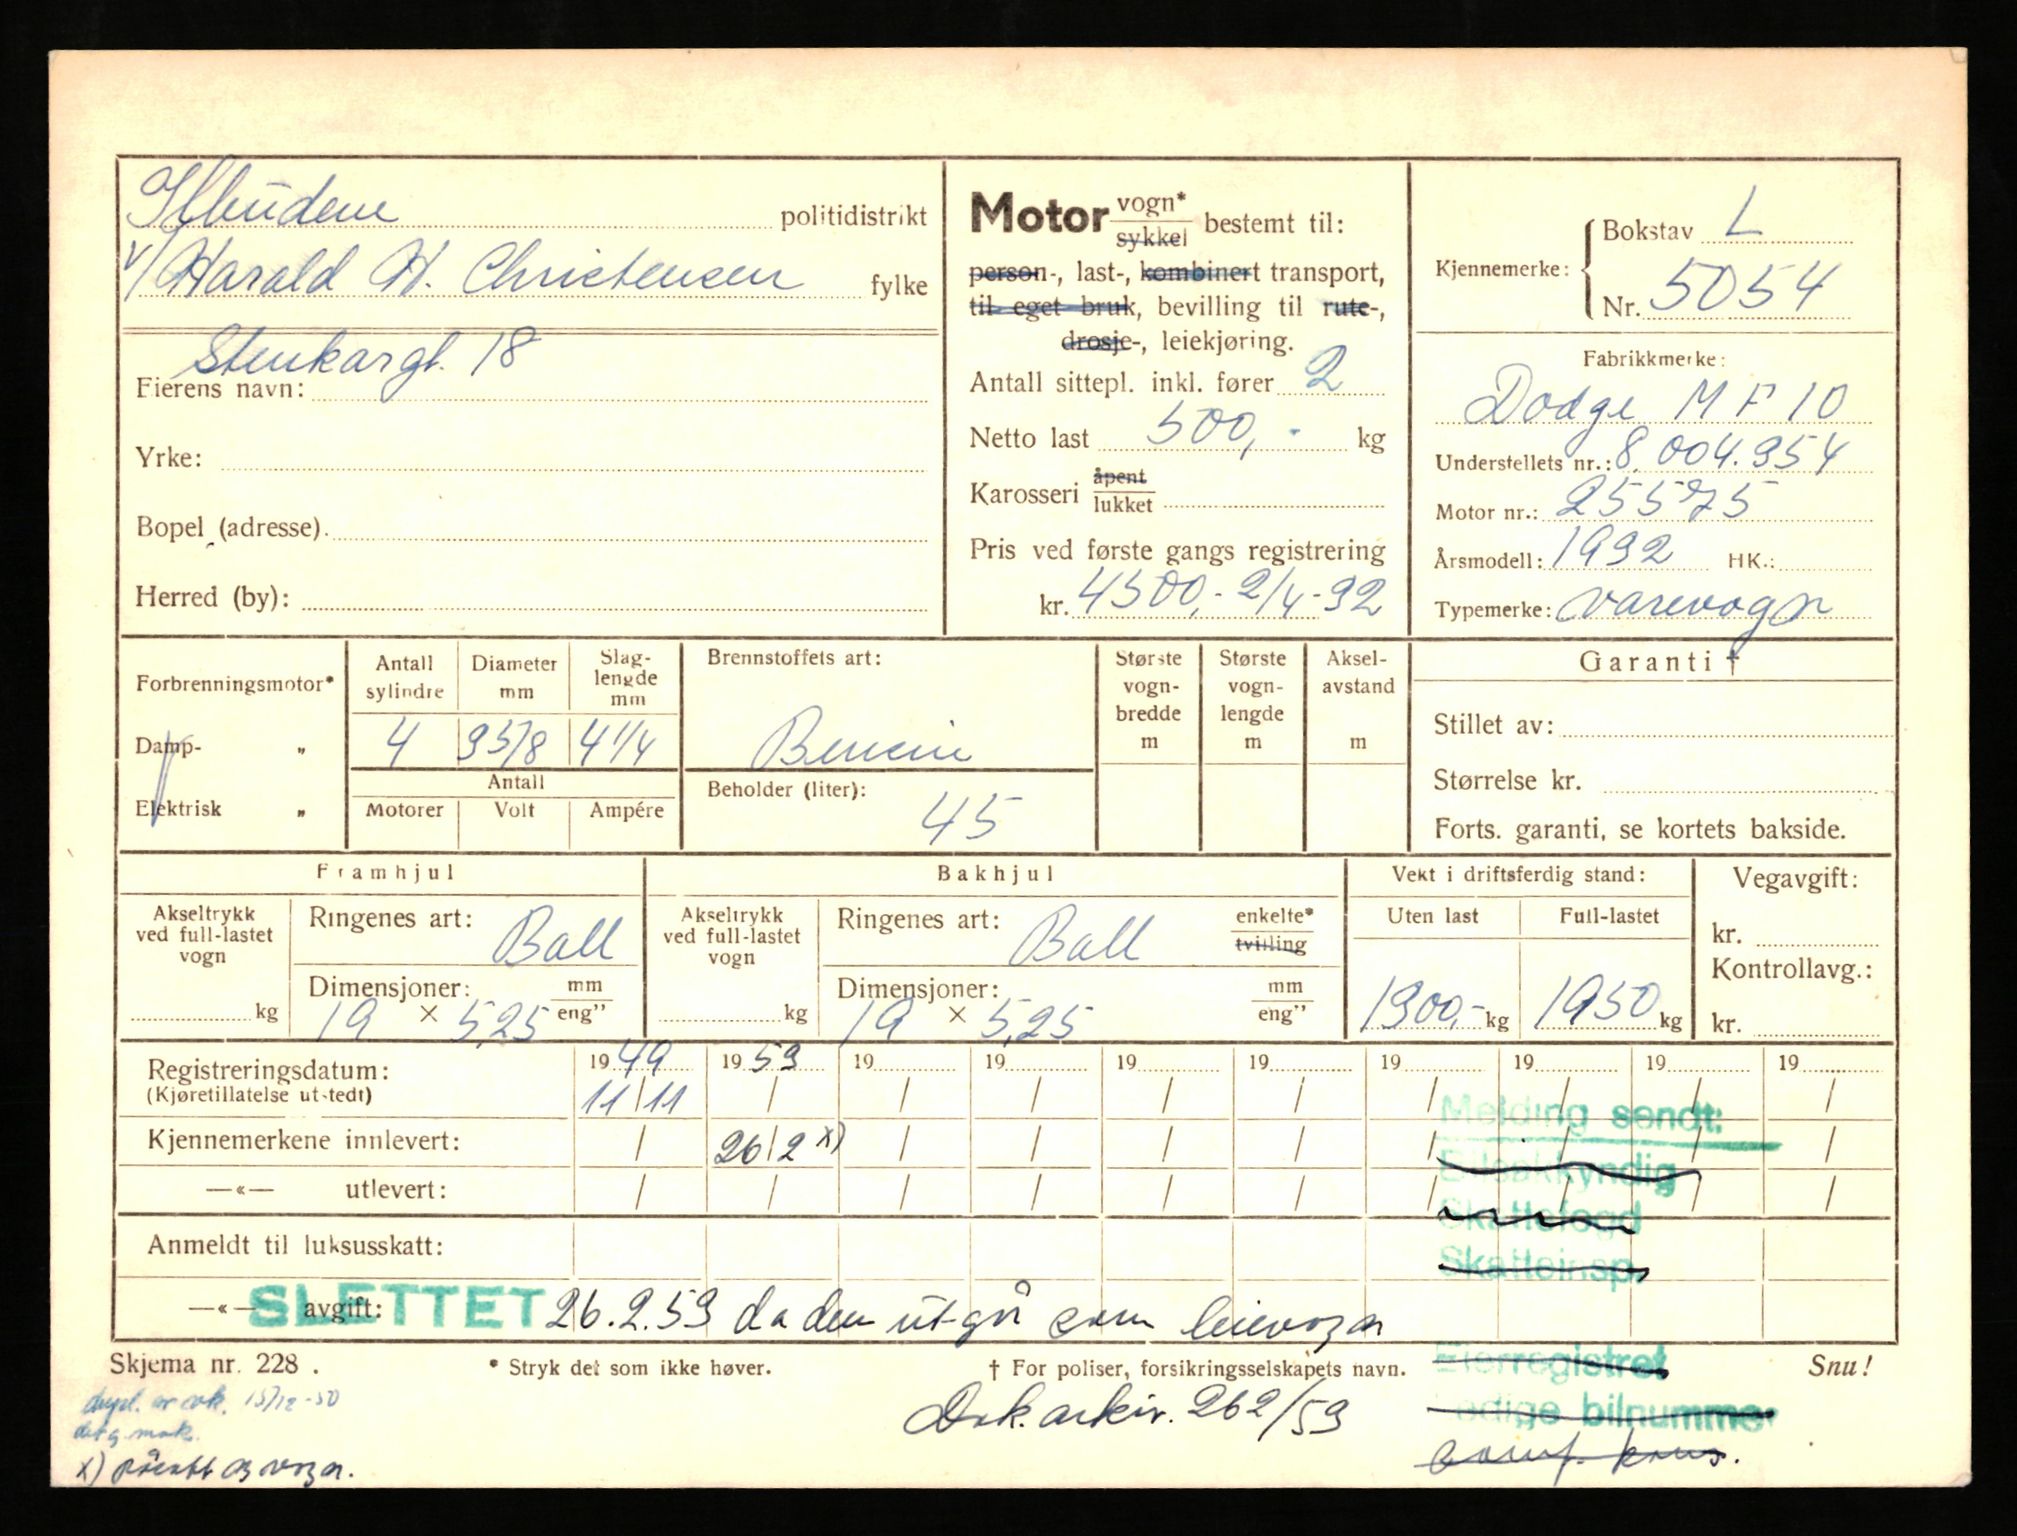 Ilbudene politidistrikt
v/ Harald H. Christensen fylke
Stenkargt. 18
Eierens navn:
Yrke:
Bopel (adresse).
Herred (by):
Motor vogn* sykkel bestemt til:
person-, last-, kombinert transport,
til eget bruk, bevilling til rute-,
drosje-, leiekjøring.
Antall sittepl. inkl. fører 2
Netto last 500,- kg
Karosseri åpent lukket
Pris ved første gangs registrering
kr. 4500,- 2/4-32
Kjennemerke: Bokstav L
Nr. 5054
Fabrikkmerke:
Dodge M F 10
Understellets nr.: 8.004.354
Motor nr.: 25575
Årsmodell: 1932 HK.:
Typemerke: varevogn
Forbrenningsmotor*
Damp- „
Elektrisk „
Antall sylindre 4
Diameter mm 3 5/8
Slaglengde mm 4 1/4
Antall
Motorer Volt Ampére
Brennstoffets art:
Bensin
Beholder (liter):
45
Største vogn-bredde m
Største vogn-lengde m
Aksel-avstand m
Garanti †
Stillet av:
Størrelse kr.
Forts. garanti, se kortets bakside.
Framhjul
Akseltrykk ved full-lastet vogn kg
Ringenes art: Ball
Dimensjoner: mm eng"
19 × 5,25
Bakhjul
Akseltrykk ved full-lastet vogn kg
Ringenes art: Ball enkelte* tvilling
Dimensjoner: mm eng"
19 × 5,25
Vekt i driftsferdig stand:
Uten last Full-lastet
1300,- kg 1950 kg
Vegavgift:
kr.
Kontrollavg.:
kr.
Registreringsdatum: 1949 1953 19 19 19 19 19 19 19 19
(Kjøretillatelse utstedt) 11/11 / / / / / / / / /
Kjennemerkene innlevert: / 26/2 x) / / / / / / / /
—«— utlevert: / / / / / / / / / /
Anmeldt til luksusskatt:
—«— avgift: SLETTET 26.2.53 da den utgår som leievogn
Melding sendt:
Bilsakkyndig
Skattefogd
Skatteinsp.
Eierregistret
Ledige bilnummer
Skjema nr. 228 . * Stryk det som ikke høver. † For poliser, forsikringsselskapets navn. Snu!
dupl. av vk. 15/12-50
Dok. arkiv. 262/53
x) påsatt ag vogn.